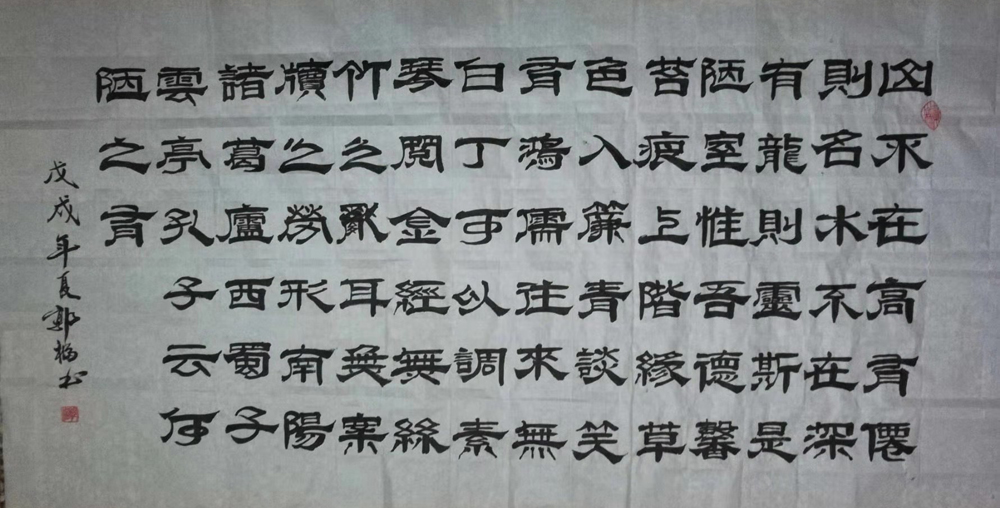 山不在高有僊
則名水不在深
有龍則靈斯是
陋室惟吾德馨
苔痕上階緣草
色入簾青談笑
有鴻儒往來無
白丁可以調素
琴閱金經無絲
竹之亂耳無案
牘之勞形南陽
諸葛盧西蜀子
雲亭孔子云何
陋之有
戊戌年夏书